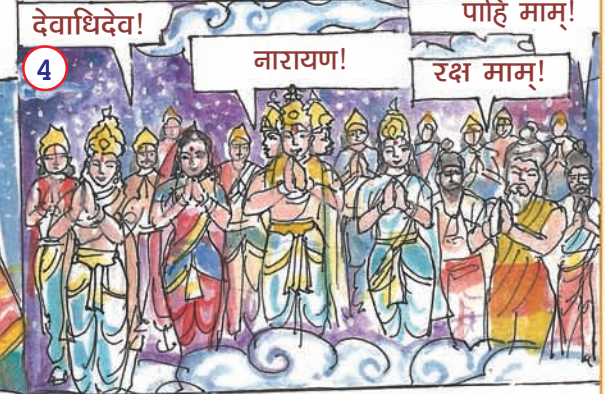 देवाधिदेव!
4
नारायण!
पाहि माम्!
रक्ष माम्!